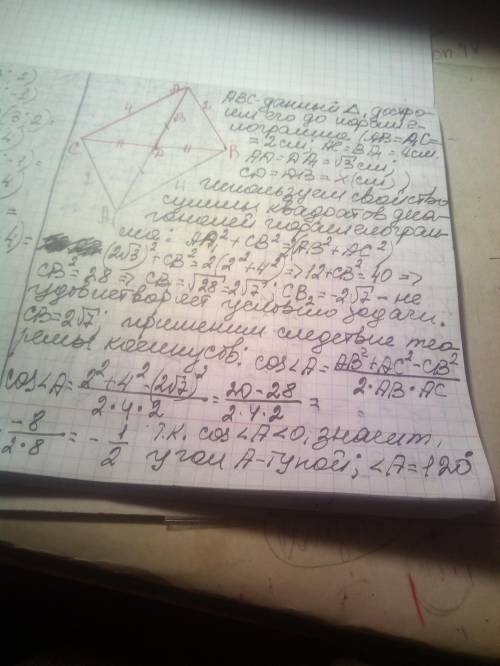 A
4
2
√3
C
D
B
4
A₁
ABC-данный Δ, достро-
им его до паралле-
лограмма (AB=A₁C=
=2см; AC=BA₁=4см.
AD=DA₁=√3см,
CD=DB=x(см)
используем свойство
суммы квадратов диа-
гоналей параллелограм-
ма: AA₁²+CB²=2(AB²+AC²)
(2√3)²+CB²=2(2²+4²)=>12+CB²=40=>
CB²=28=> CB₁=√28=2√7; CB₂=-2√7-не
удовлетворяет условию задачи.
CB=2√7; применим следствие тео-
ремы косинусов: cos∠A=AB²+AC²-CB²/2·AB·AC
cos∠A=2²+4²-(2√7)²/2·4·2=20-28/2·4·2=
-8/2·8=-1/2 Т.к. cos∠A<0, значит,
угол A-тупой; ∠A=120°